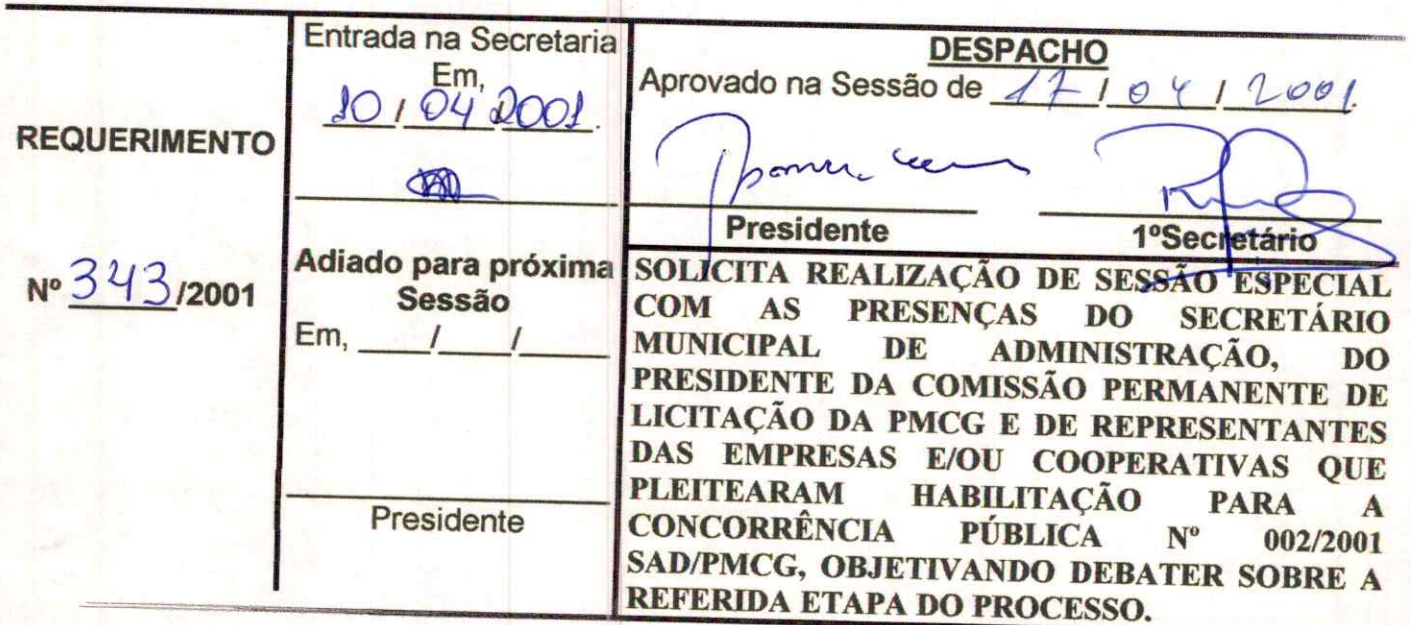 REQUERIMENTO
Nº 343/2001
Entrada na Secretaria
Em,
10/04/2001.
Adiado para próxima
Sessão
Em, ____/____/____
Presidente
DESPACHO
Aprovado na Sessão de 17/04/2001.
Presidente
1ºSecretário
SOLICITA REALIZAÇÃO DE SESSÃO ESPECIAL
COM AS PRESENÇAS DO SECRETÁRIO
MUNICIPAL DE ADMINISTRAÇÃO, DO
PRESIDENTE DA COMISSÃO PERMANENTE DE
LICITAÇÃO DA PMCG E DE REPRESENTANTES
DAS EMPRESAS E/OU COOPERATIVAS QUE
PLEITEARAM HABILITAÇÃO PARA A
CONCORRÊNCIA PÚBLICA Nº 002/2001
SAD/PMCG, OBJETIVANDO DEBATER SOBRE A
REFERIDA ETAPA DO PROCESSO.